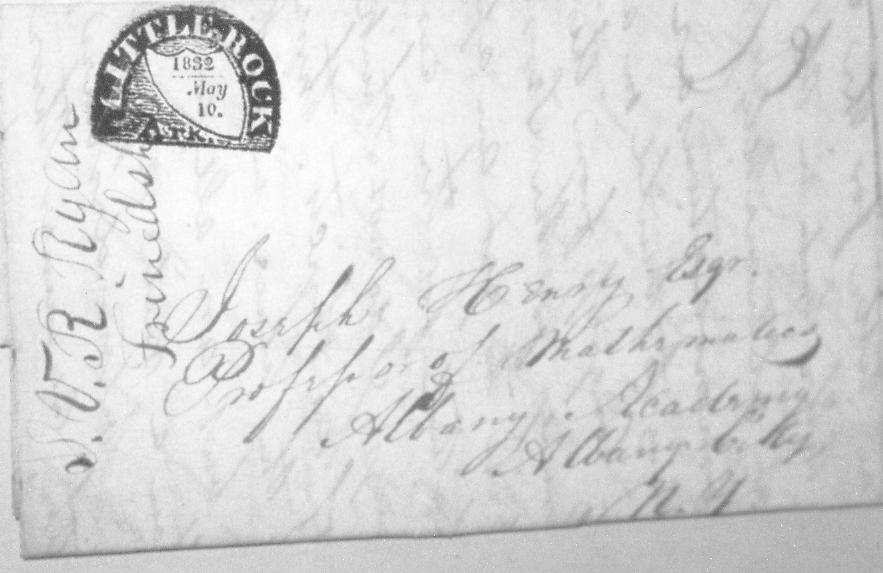 LITTLE ROCK
1832
May
10.
ARK.
S.V.R Ryan
Joseph Henry Esqr.
Professor of Mathematics
Albany Academy
Albany City
N.Y